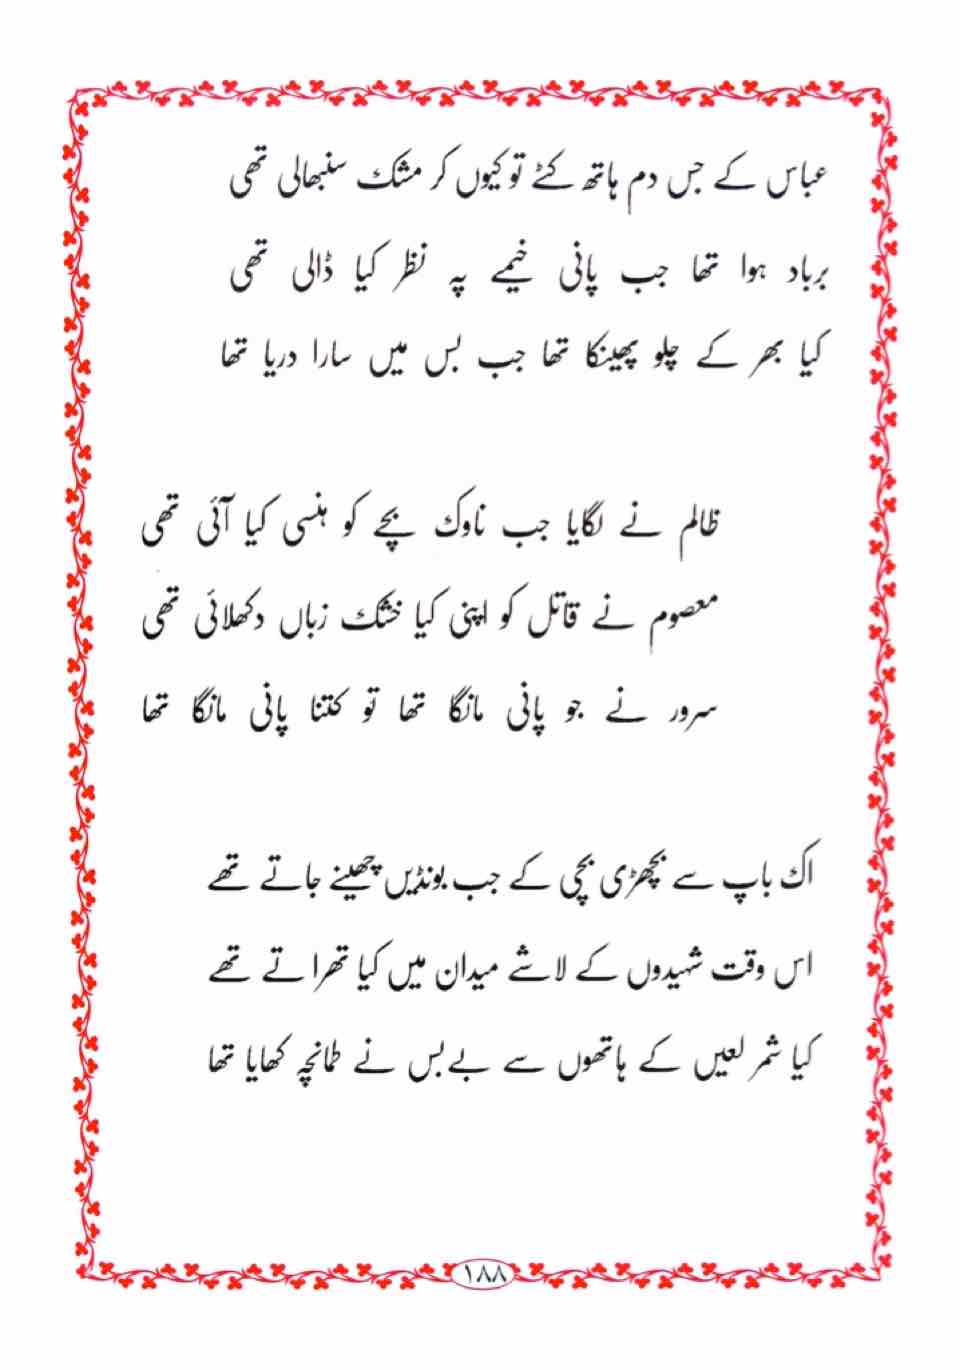 عباس کے جس دم ہاتھ کٹے تو کیوں کر مشک سنبھالی تھی
برباد ہوا تھا جب پانی خیمے پہ نظر کیا ڈالی تھی
کیا بھر کے چلو پھینکا تھا جب بس میں سارا دریا تھا
ظالم نے لگایا جب ناوک بچے کو ہنسی کیا آئی تھی
معصوم نے قاتل کو اپنی کیا خشک زباں دکھلائی تھی
سرور نے جو پانی مانگا تھا تو کتنا پانی مانگا تھا
اک باپ سے بچھڑی بچی کے جب بونڈیں چھینے جاتے تھے
اس وقت شہیدوں کے لاشے میدان میں کیا تھرا تے تھے
کیا شمر لعیں کے ہاتھوں سے بےبس نے طمانچہ کھایا تھا
۱۸۸